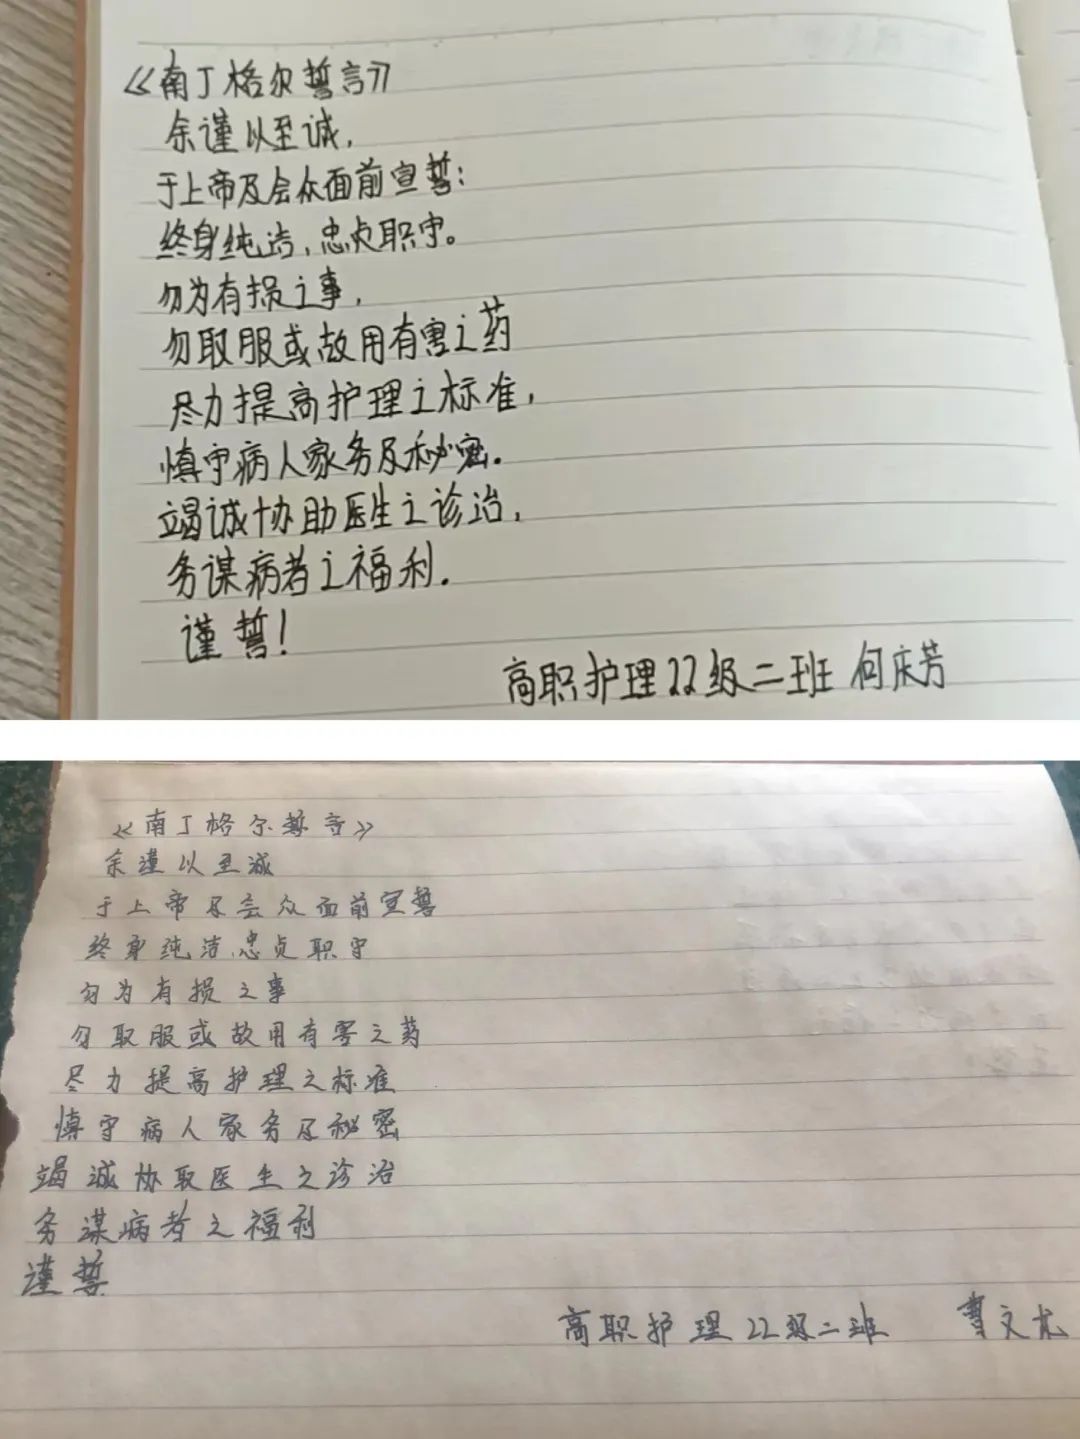 《南丁格尔誓言》
余谨以至诚,
于上帝及会众面前宣誓:
终身纯洁,忠贞职守。
勿为有损之事,
勿取服或故用有害之药
尽力提高护理之标准,
慎守病人家务及秘密.
竭诚协助医生之诊治,
务谋病者之福利.
谨誓!
高职护理22级二班 何庆芳
《南丁格尔誓言》
余谨以至诚
于上帝及会众面前宣誓
终身纯洁,忠贞职守
勿为有损之事
勿取服或故用有害之药
尽力提高护理之标准
慎守病人家务及秘密
竭诚协取医生之诊治
务谋病者之福利
谨誓
高职护理22级二班 曹文龙